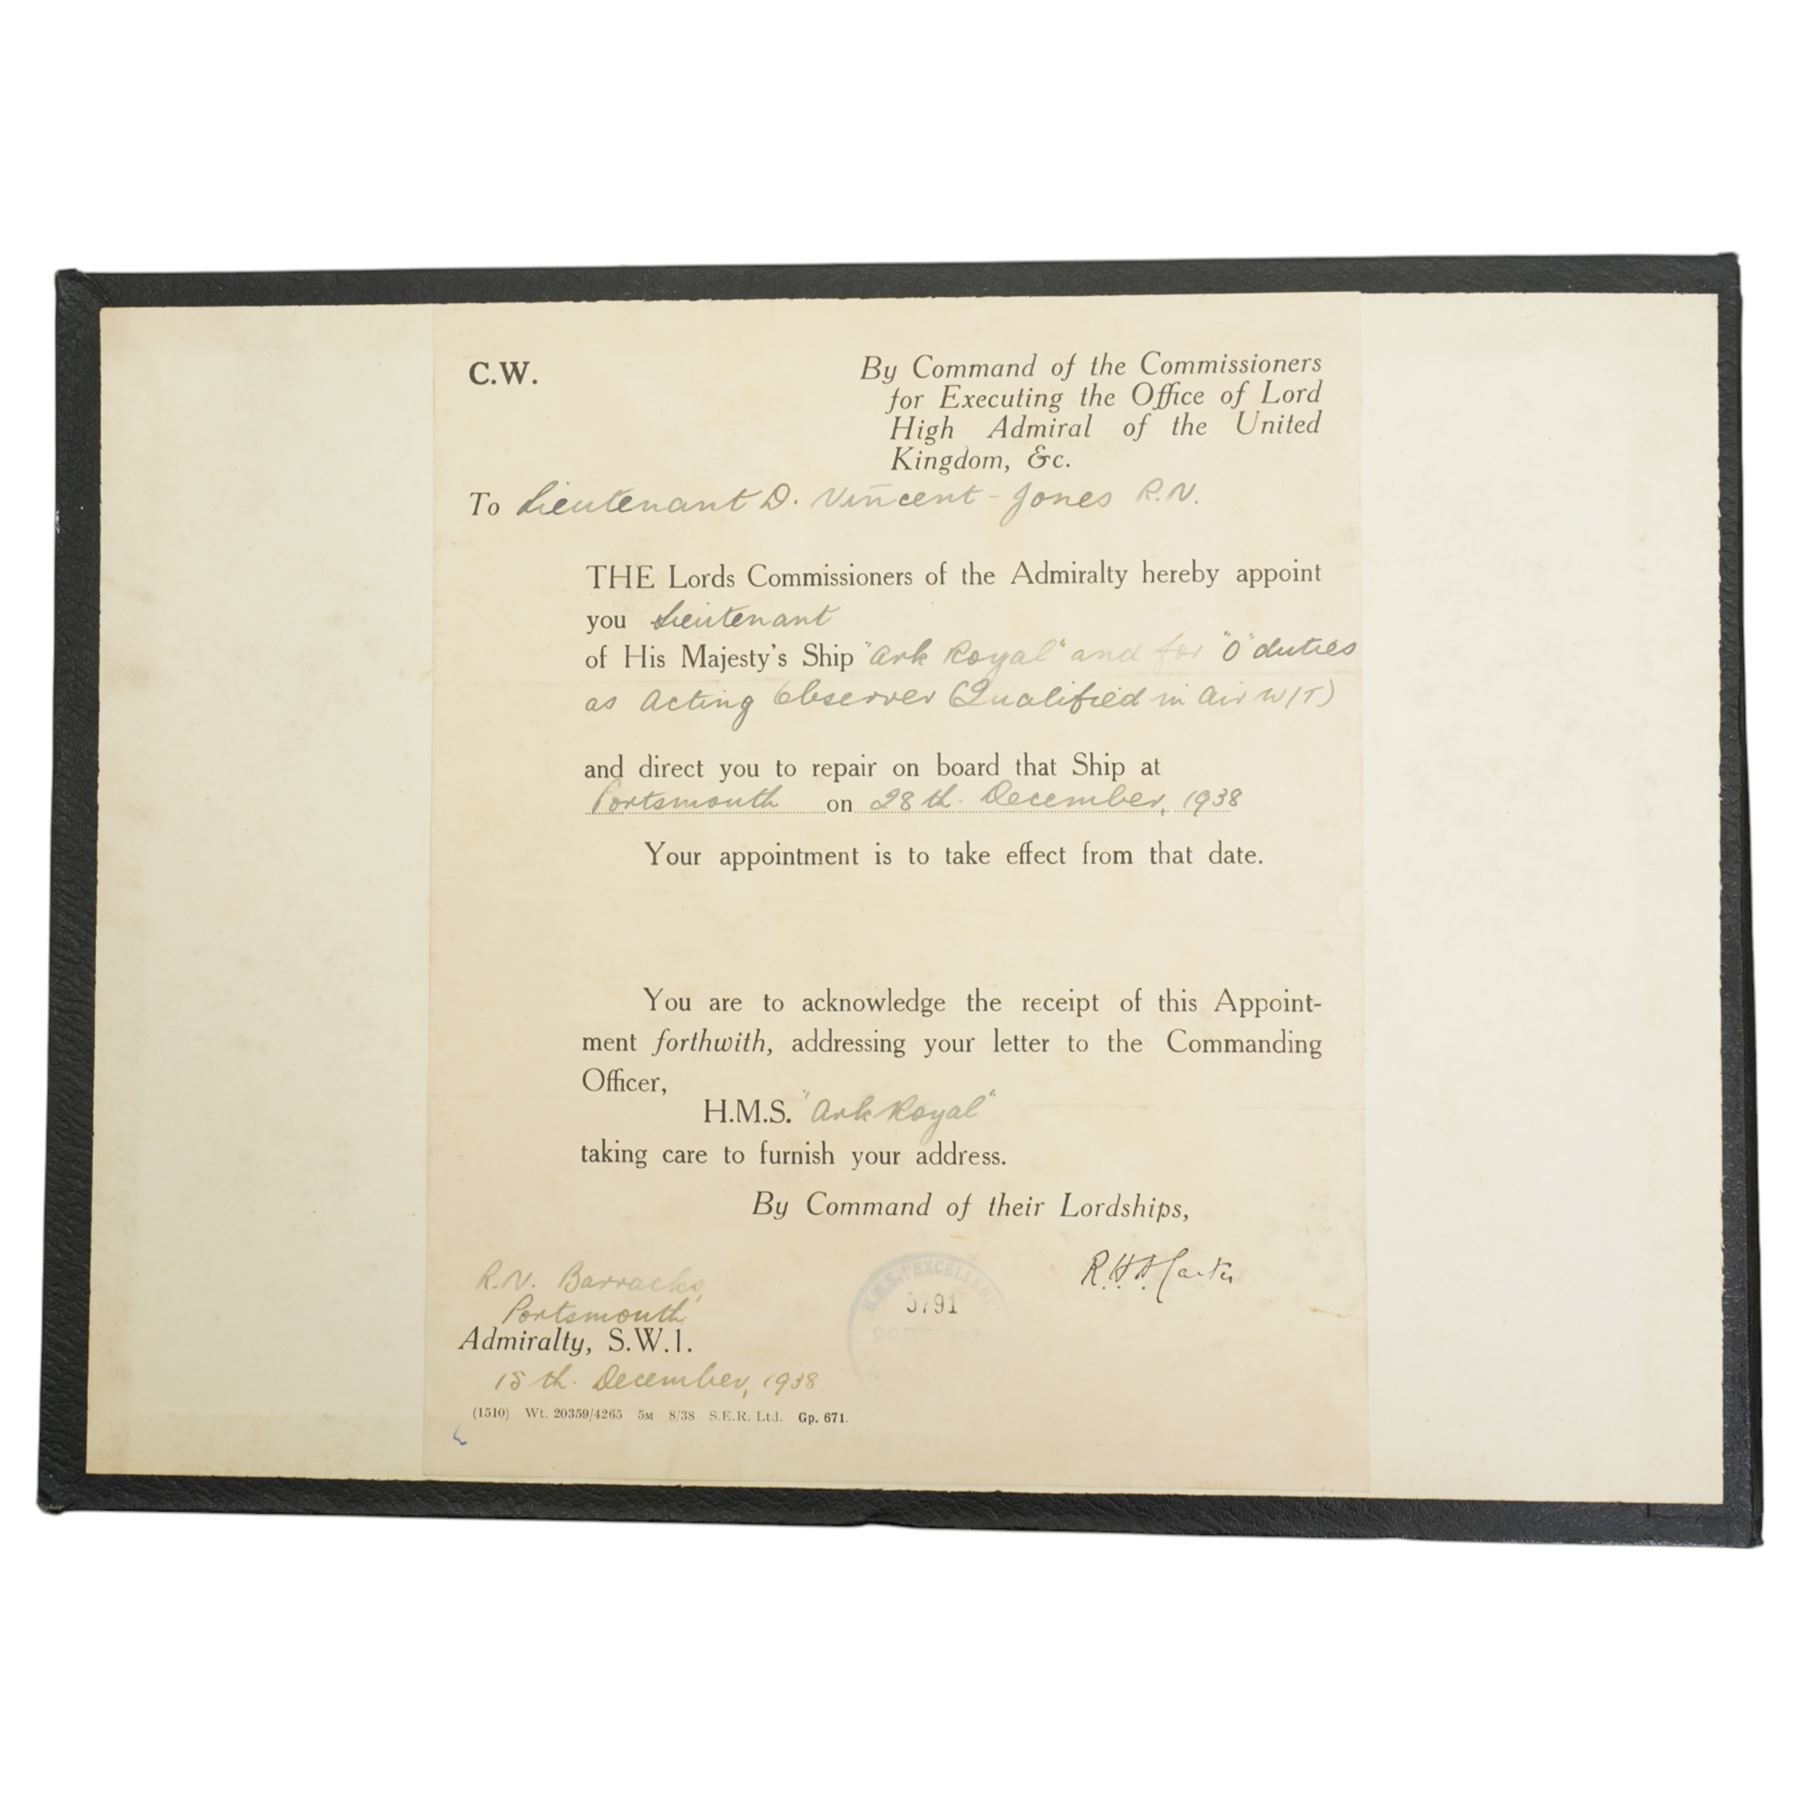 C.W.
By Command of the Commissioners
for Executing the Office of Lord
High Admiral of the United
Kingdom, &c.
To Lieutenant D. Vincent-Jones R.N.
THE Lords Commissioners of the Admiralty hereby appoint
you Lieutenant
of His Majesty's Ship "Ark Royal" and for "O" duties
as Acting Observer (Qualified in Air W/T)
and direct you to repair on board that Ship at
Portsmouth on 28th. December, 1938
Your appointment is to take effect from that date.
You are to acknowledge the receipt of this Appoint-
ment forthwith, addressing your letter to the Commanding
Officer,
H.M.S. "Ark Royal"
taking care to furnish your address.
By Command of their Lordships,
R.H.A. Carter
R.N. Barracks,
Portsmouth
H.M.S. "EXCELLENT"
Admiralty, S.W.1.
December, 1938
(1510) Wt. 20359/4265 5M 8/38 S.E.R. Ltd. Gp. 671.